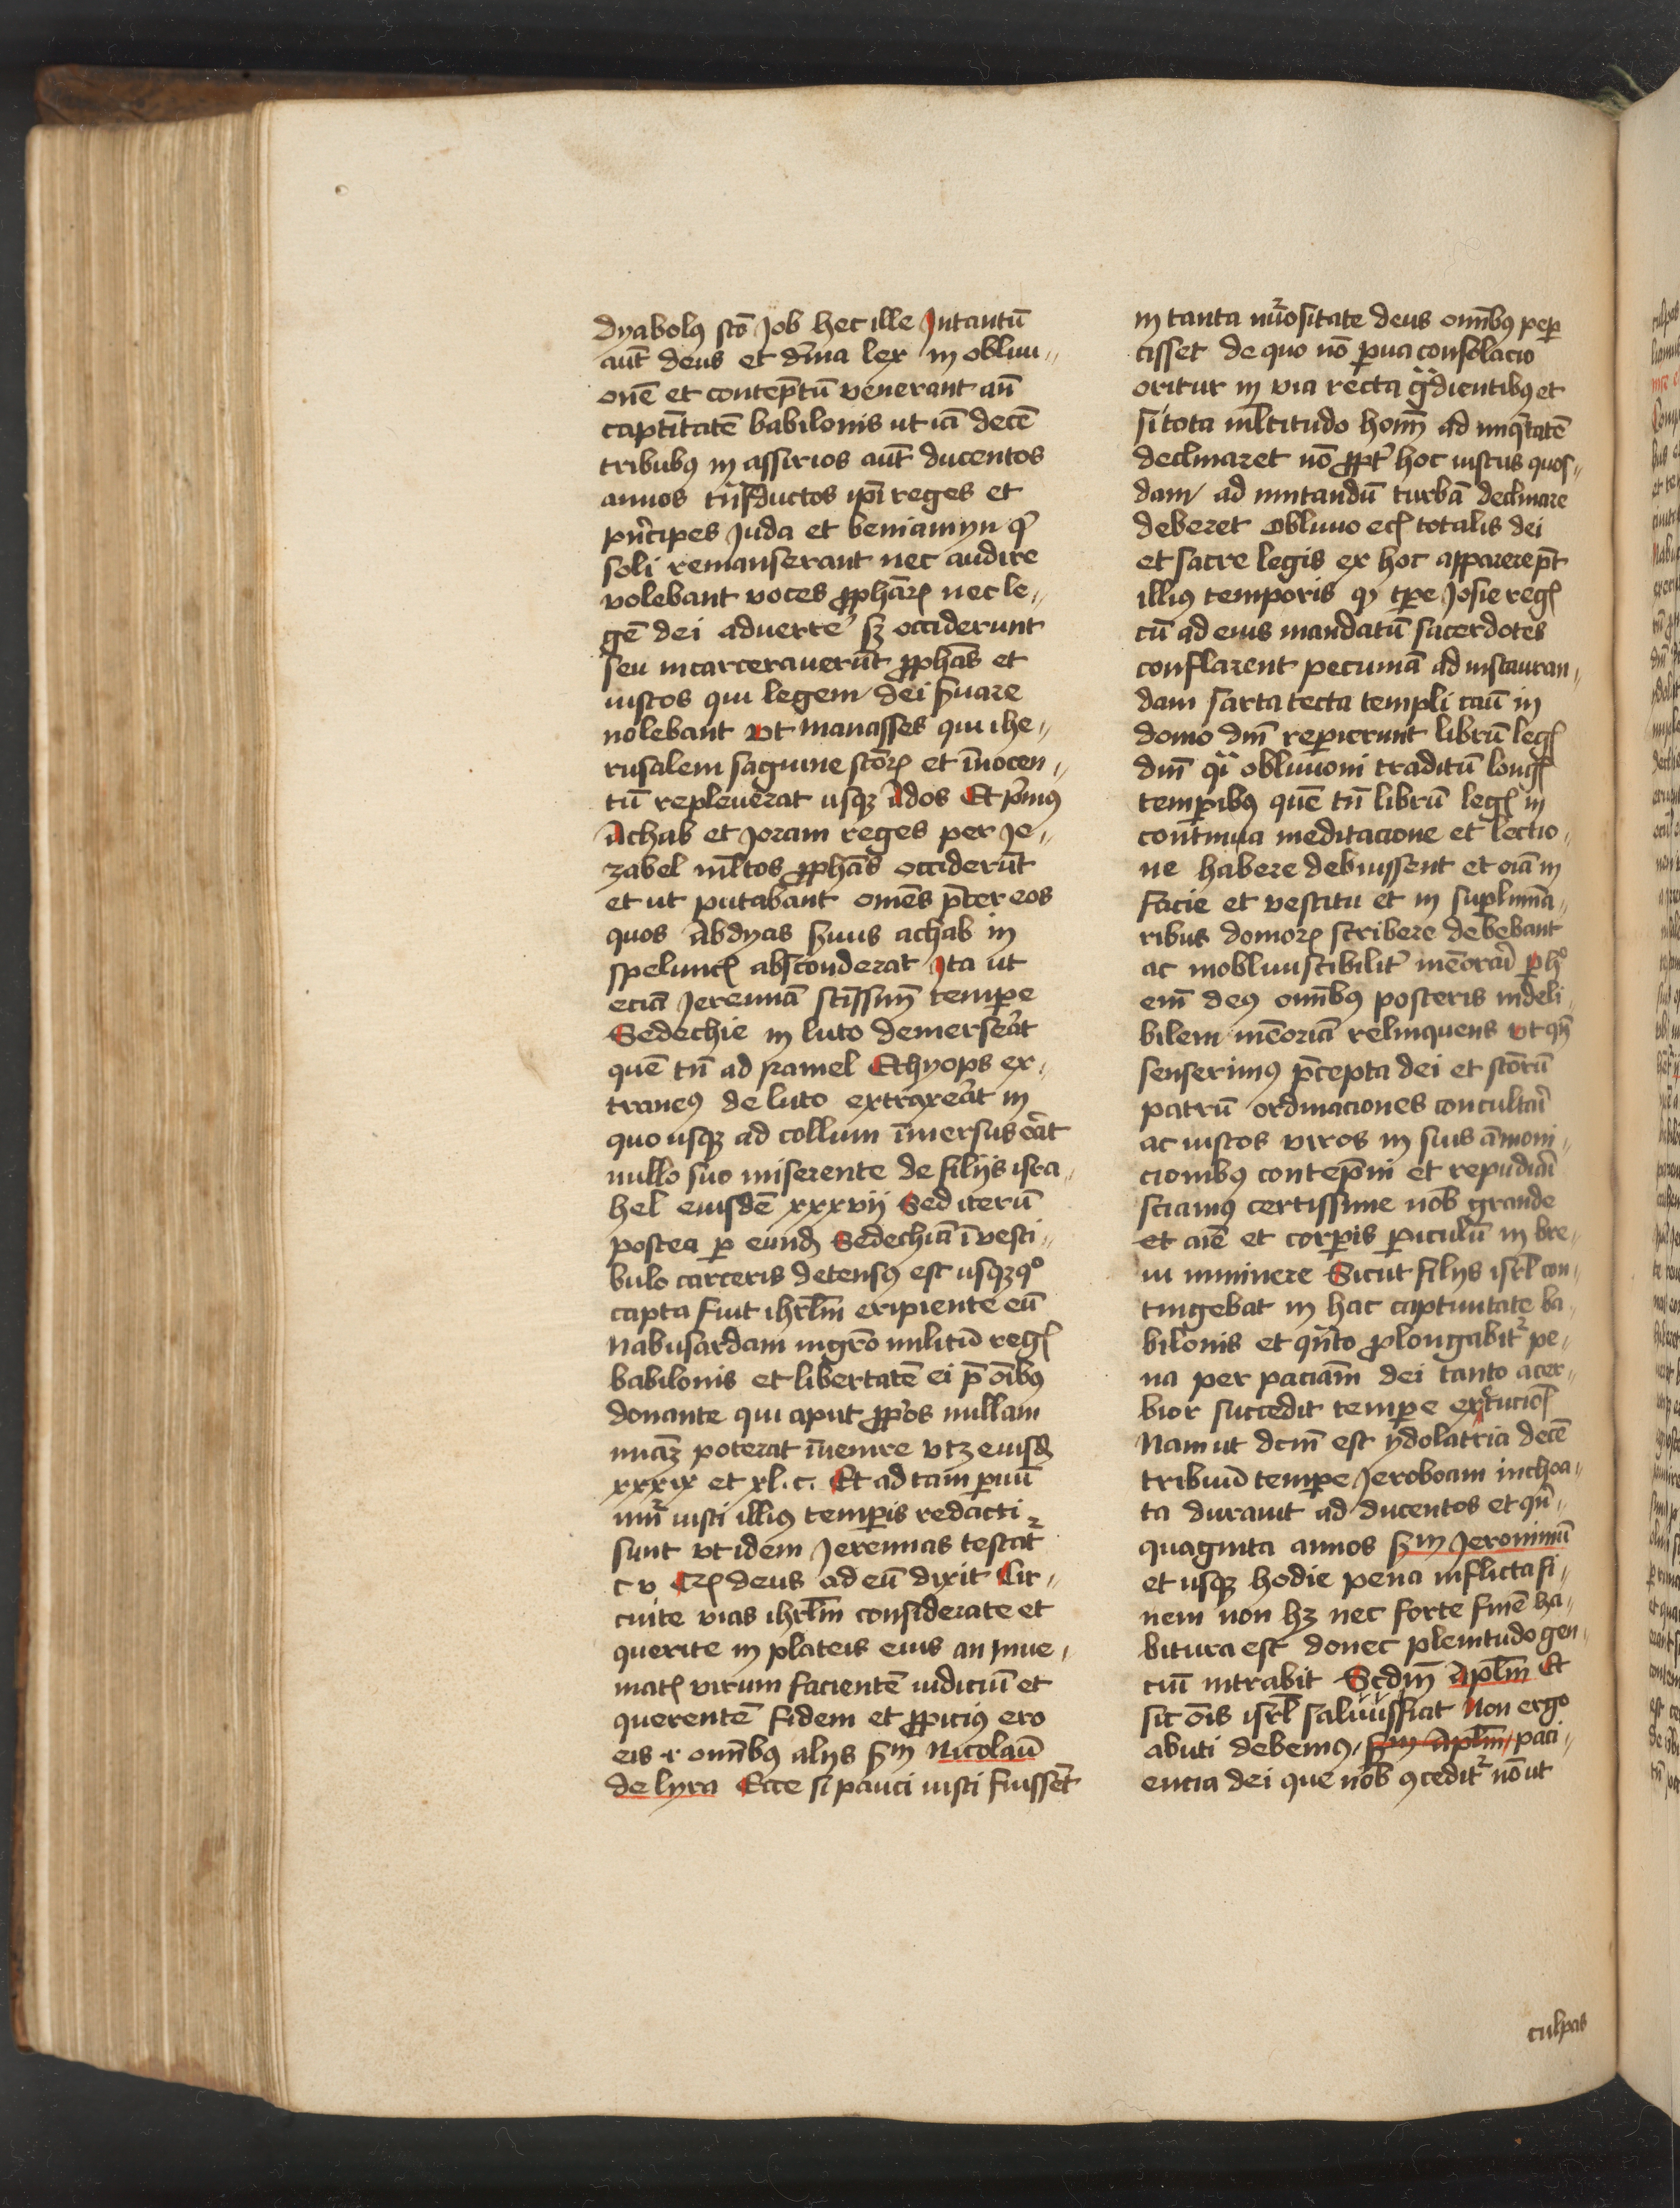 dyabolꝯ scō Job hec ille Intantū
aut̄ deus et dīna lex in obliui„
onē et contēptū venerant an̄
captītatē babilonis ut iā decē
tribubꝯ in assirios aut̄ ducentos
annos tn̄sductos ipī reges et
pn̄cipes Juda et beniamyn qͥ
soli remanserant nec audire
volebant voces ꝓphāꝝ nec le„
gē dei aduerte᷑ sꝫ occiderunt
seu incarcerauerūt ꝓphās et
iustos qui legem dei s̄uare
nolebant vt manasses qui ihe„
rusalem sagwine scōꝝ et īnocen„
tū repleuerat usqꝫ ados Et pͥmꝯ
Achab et Joram reges per Je„
zabel ml̄tos ꝓphās occiderūt
et ut putabant omēs p̄ter eos
quos Abdyas s̄uus achab in
speluncꝭ absconderat Ita ut
eciā Jeremiā sc̄issimū tempore
Sedechie in luto demerserāt
quē tn̄ ad ramel Ethyops ex„
traneꝯ de luto extraxerāt in
quo usqꝫ ad collum īmersus erāt
nullo suo miserente de filijs isra„
hel eiusdē xxxvij Sed iterū
postea ꝑ eundꝫ Sedechiā ī vesti„
bulo carceris detensꝯ est usqꝫ qͦ
capta fuit ihrl̄m eripiente eū
Nabusardam mgr̄o militū regꝭ
babilonis et libertatē ei p̄ oībꝯ
donante qui aput ꝓpͥos nullam
miāꝫ poterat īuenire vtꝫ eiusdꝫ
xxxix et xl. c. Et ad tam ꝑuū
nūꝝ iusti illiꝯ temꝑis redacti
sunt vt idem Jeremias testat᷑
c v Cꝝ deus ad eū dixit Cir„
cuite vias ihrl̄m considerate et
querite in plateis eius an Inue„
niatꝭ virum facientē iudiciū et
querentē fidem et ꝓpiciꝯ ero
eis ⁊ omībꝯ alijs s̄m Nicolaū
de lyra Ecce si pauci iusti fuissēt
in tanta nūositate deus omībꝯ peꝑ
cisset de quo nō ꝑua consolacio
oritur in via recta gͣdientibꝯ et
si tota ml̄titudo hom̄ ad iniqͥtatē
declinaret nō ꝓpt᷑ hoc iustus quos„
dam ad imitandū turbā declinare
deberet Obliuio ecꝭ totalis dei
et sacre legis ex hoc apparere pt̄
illiꝯ temporis qꝫ tꝑe Josie regꝭ
cū ad eius mandatū sacerdotes
conflarent pecuniā ad instauran„
dam sarta tecta templi caū in
domo dn̄i reperierunt librū legꝭ
dn̄i qͥ obliuioni traditū longꝭ
temꝑibꝯ quē tn̄ librū legꝭ in
continua meditacione et lectio„
ne habere debuissent et eciā in
facie et vestitu et in suꝑlimina„
ribus domoꝝ scribere debebant
ac inobliuiscibilit᷑ memorari ꝑ hͦ
eni deꝯ omībꝯ posteris indeli„
bilem memoriā relinquens vt qn̄
senserimꝯ p̄cepta dei et scōrū
patrū ordinaciones conculcari
ac iustos viros in suis amoni„
cionibꝯ contēpni et repudiari
sciamꝯ certissime nob grande
et aīe et corꝑis ꝑiculū in bre„
ui iminere Sicut filijs isrl̄ con„
tingebat in hac captiuitate ba„
bilonis et qn̄to ꝓlongabit᷑ pe„
na per paciam̄ dei tanto acer„
bior succedit tempore executōꝭ
Nam ut dcm̄ est ydolatria decē
tribuū tempore Jeroboam inchoa„
ta durauit ad ducentos et qn̄„
quaginta annos s̄m Jeronimū
et usqꝫ hodie pena inflicta fi„
nem non hꝫ nec forte finē ha„
bitura est donec plenitudo gen„
ciū intrabit Scdm̄ Apl̄m Et
sic oīs isrl̄ saluus fiat Non ergo
abuti debemꝯ s̄m Apl̄m paci„
encia dei que nob ꝯcedit᷑ nō ut
culpas